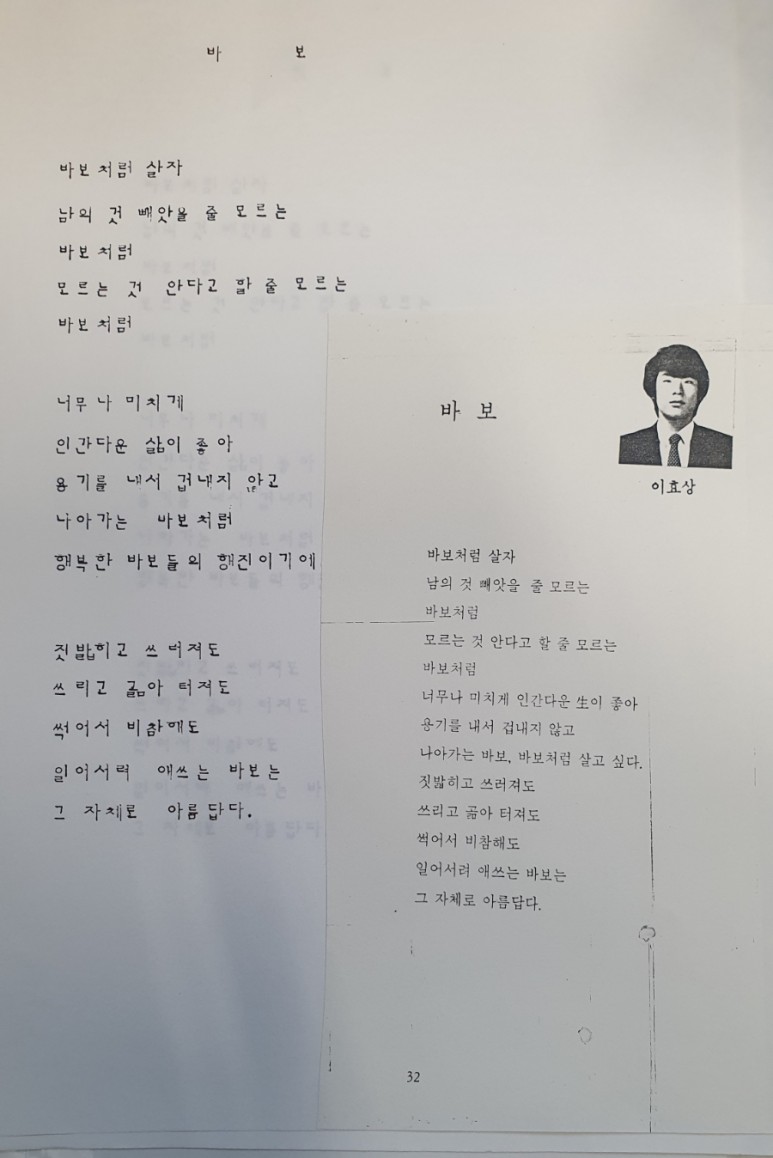 바 보
바보처럼 살자
남의 것 빼앗을 줄 모르는
바보처럼
모르는 것 안다고 할 줄 모르는
바보처럼
너무나 미치게
인간다운 삶이 좋아
용기를 내서 겁내지 않고
나아가는 바보처럼
행복한 바보들의 행진이기에
짓밟히고 쓰터져도
쓰리고 곪아 터져도
썩어서 비참해도
일어서려 애쓰는 바보는
그 자체로 아름답다.
바 보
이효상
바보처럼 살자
남의 것 빼앗을 줄 모르는
바보처럼
모르는 것 안다고 할 줄 모르는
바보처럼
너무나 미치게 인간다운 生이 좋아
용기를 내서 겁내지 않고
나아가는 바보, 바보처럼 살고 싶다.
짓밟히고 쓰러져도
쓰리고 곪아 터져도
썩어서 비참해도
일어서려 애쓰는 바보는
그 자체로 아름답다.
32